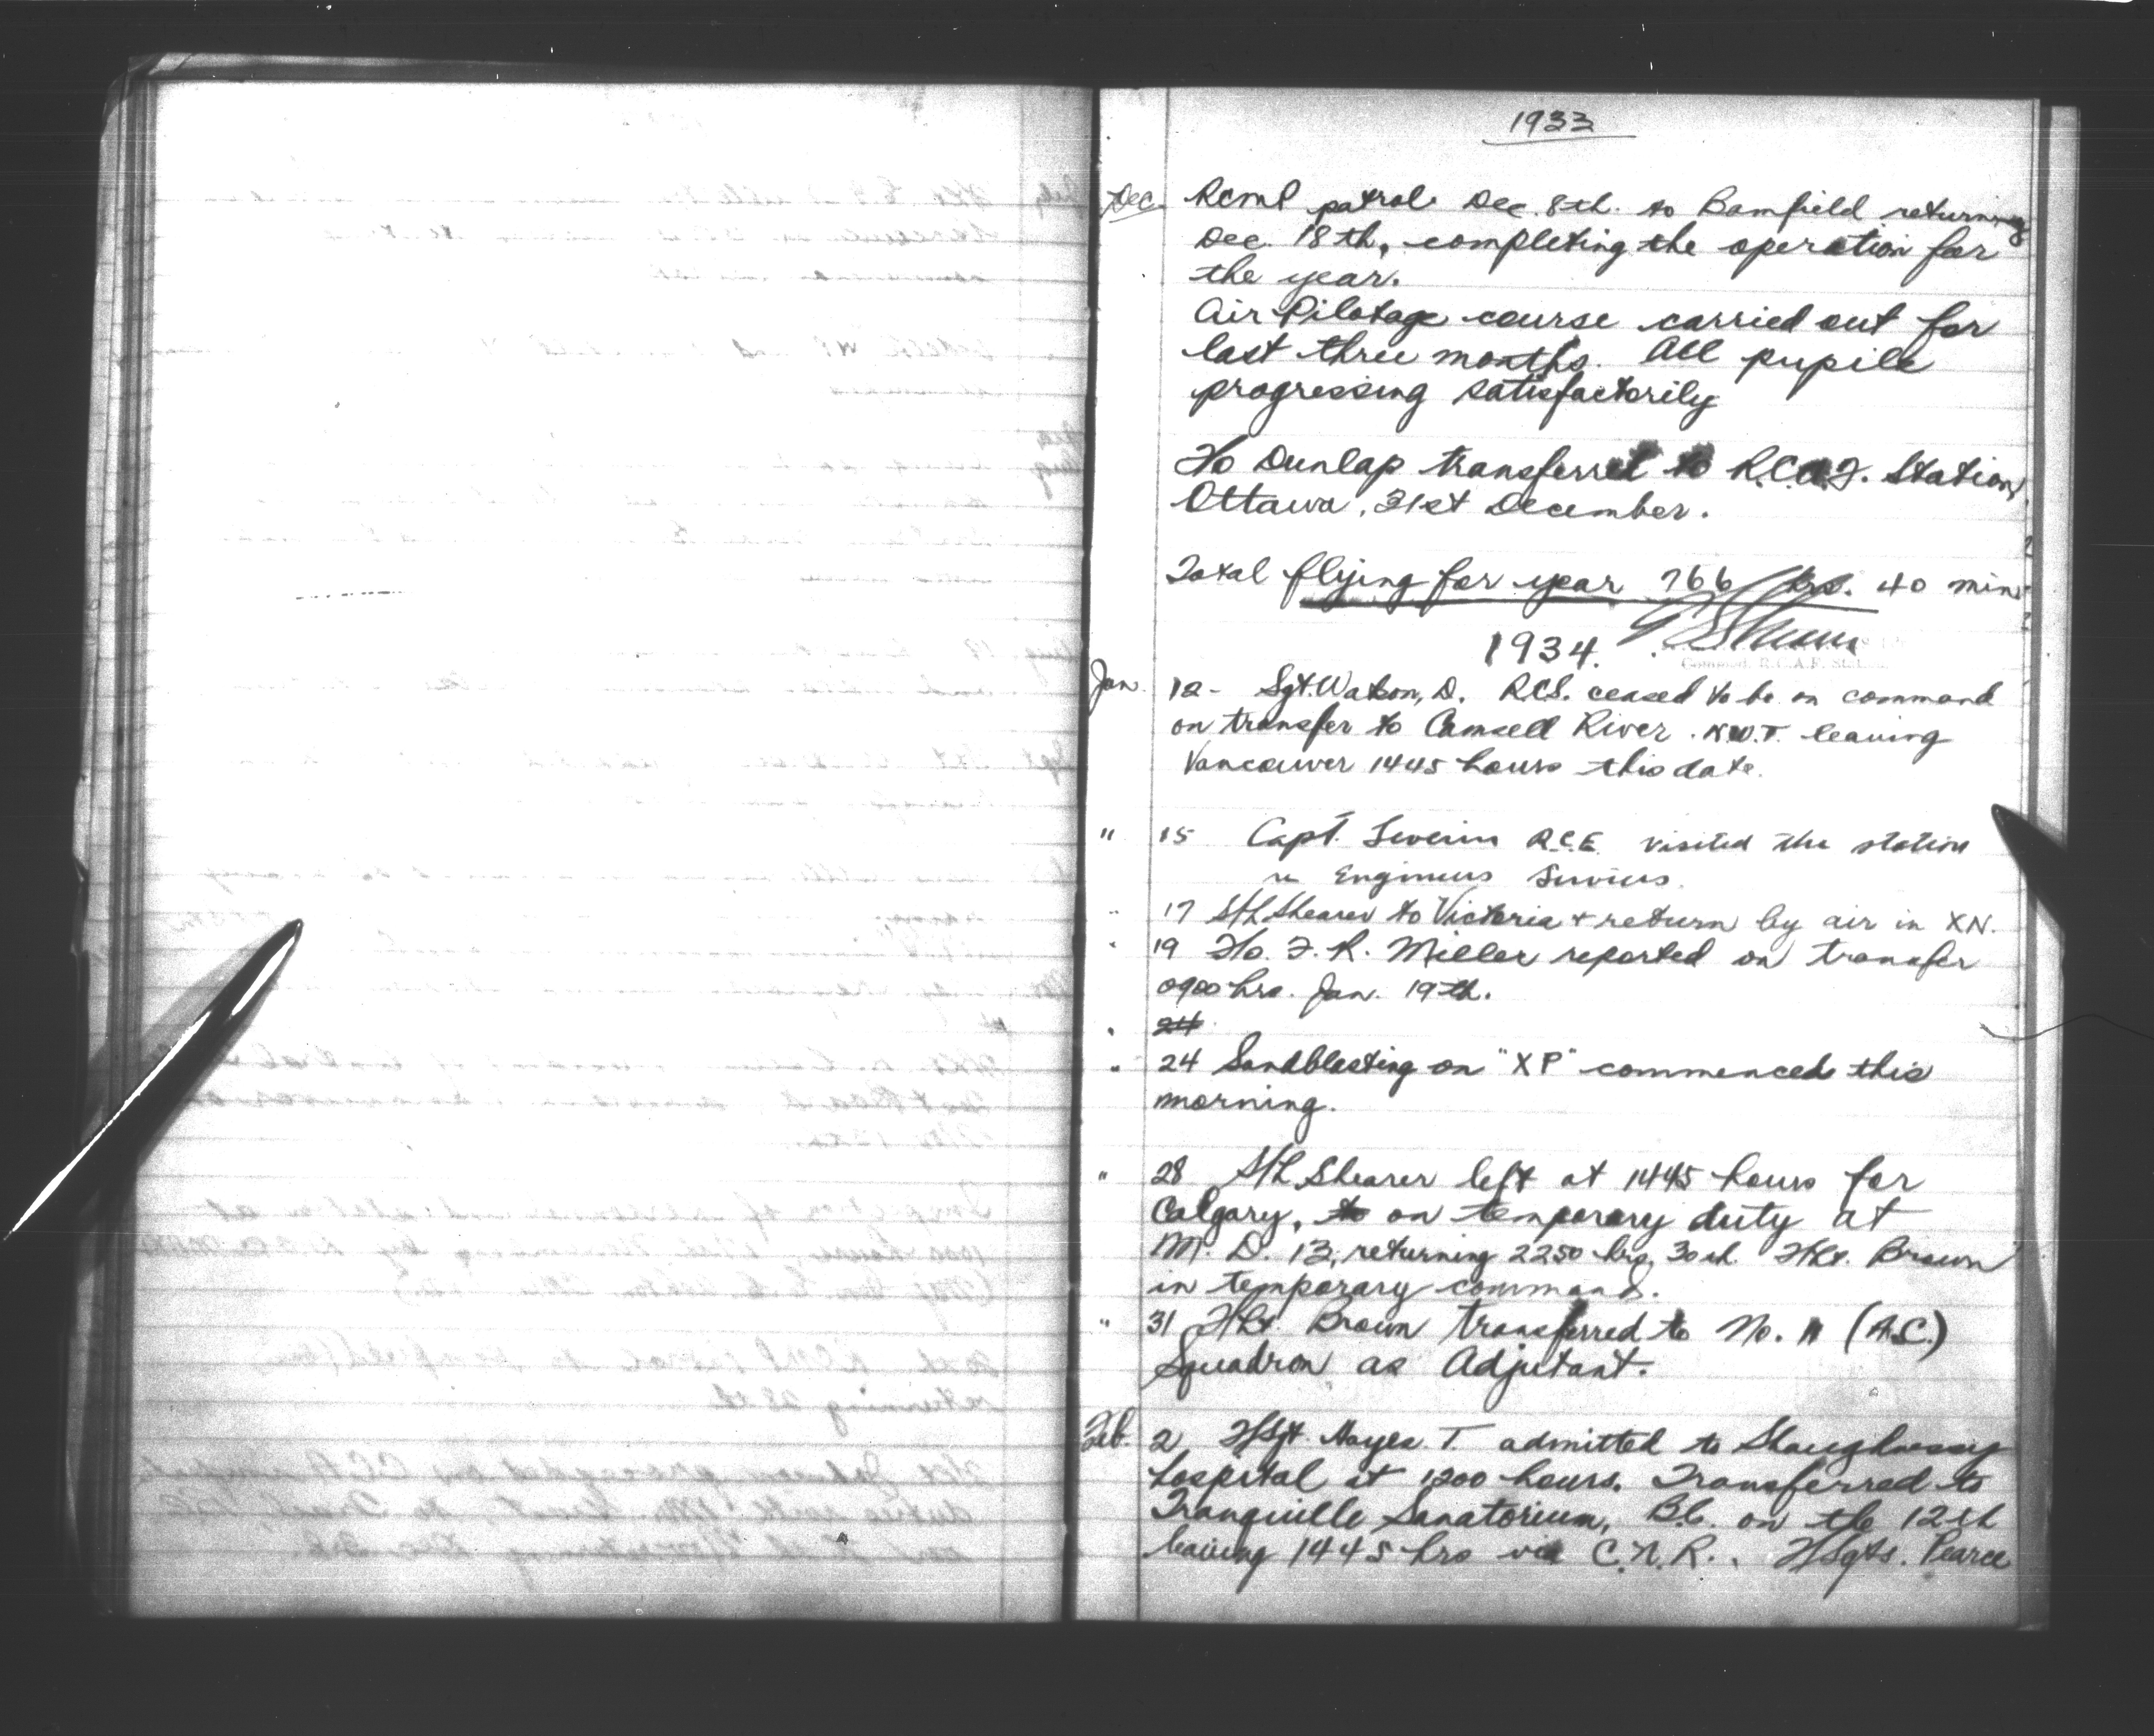 1933
Dec. RCMP patrol Dec. 8th. to Bamfield returning
Dec. 18th, completing the operation for
the year.
Air Pilotage course carried out for
last three months. All pupils
progressing satisfactorily
F/o Dunlap transferred to R.C.A.F. Station,
Ottawa, 31st December.
Total flying for year 766 hrs. 40 mins
1934.
Command. R.C.A.F. Station
Jan. 12 - Sgt. Watson, D. RCS. ceased to be on command
on transfer to Camsell River. N.W.T. leaving
Vancouver 1445 hours this date.
" 15 Capt. Severin R.C.E. visited the station
re Engineers Services.
" 17 S/L Shearer to Victoria & return by air in XN.
" 19 F/o. F. R. Miller reported on transfer
0900 hrs. Jan. 19th.
" 24
" 24 Sandblasting on "XP" commenced this
morning.
" 28 S/L Shearer left at 1445 hours for
Calgary, to on temporary duty at
M. D. 13, returning 2250 hrs, 30th. F/Lt. Brown
in temporary command.
" 31 F/Lt. Brown transferred to No. 11 (A.C.)
Squadron as Adjutant.
Feb. 2 F/Sgt. Hayes. T. admitted to Shaughnessy
hospital at 1200 hours. Transferred to
Tranquille Sanatorium, B.C. on the 12th
leaving 1445 hrs via C.N.R.. F/Sgts. Pearce